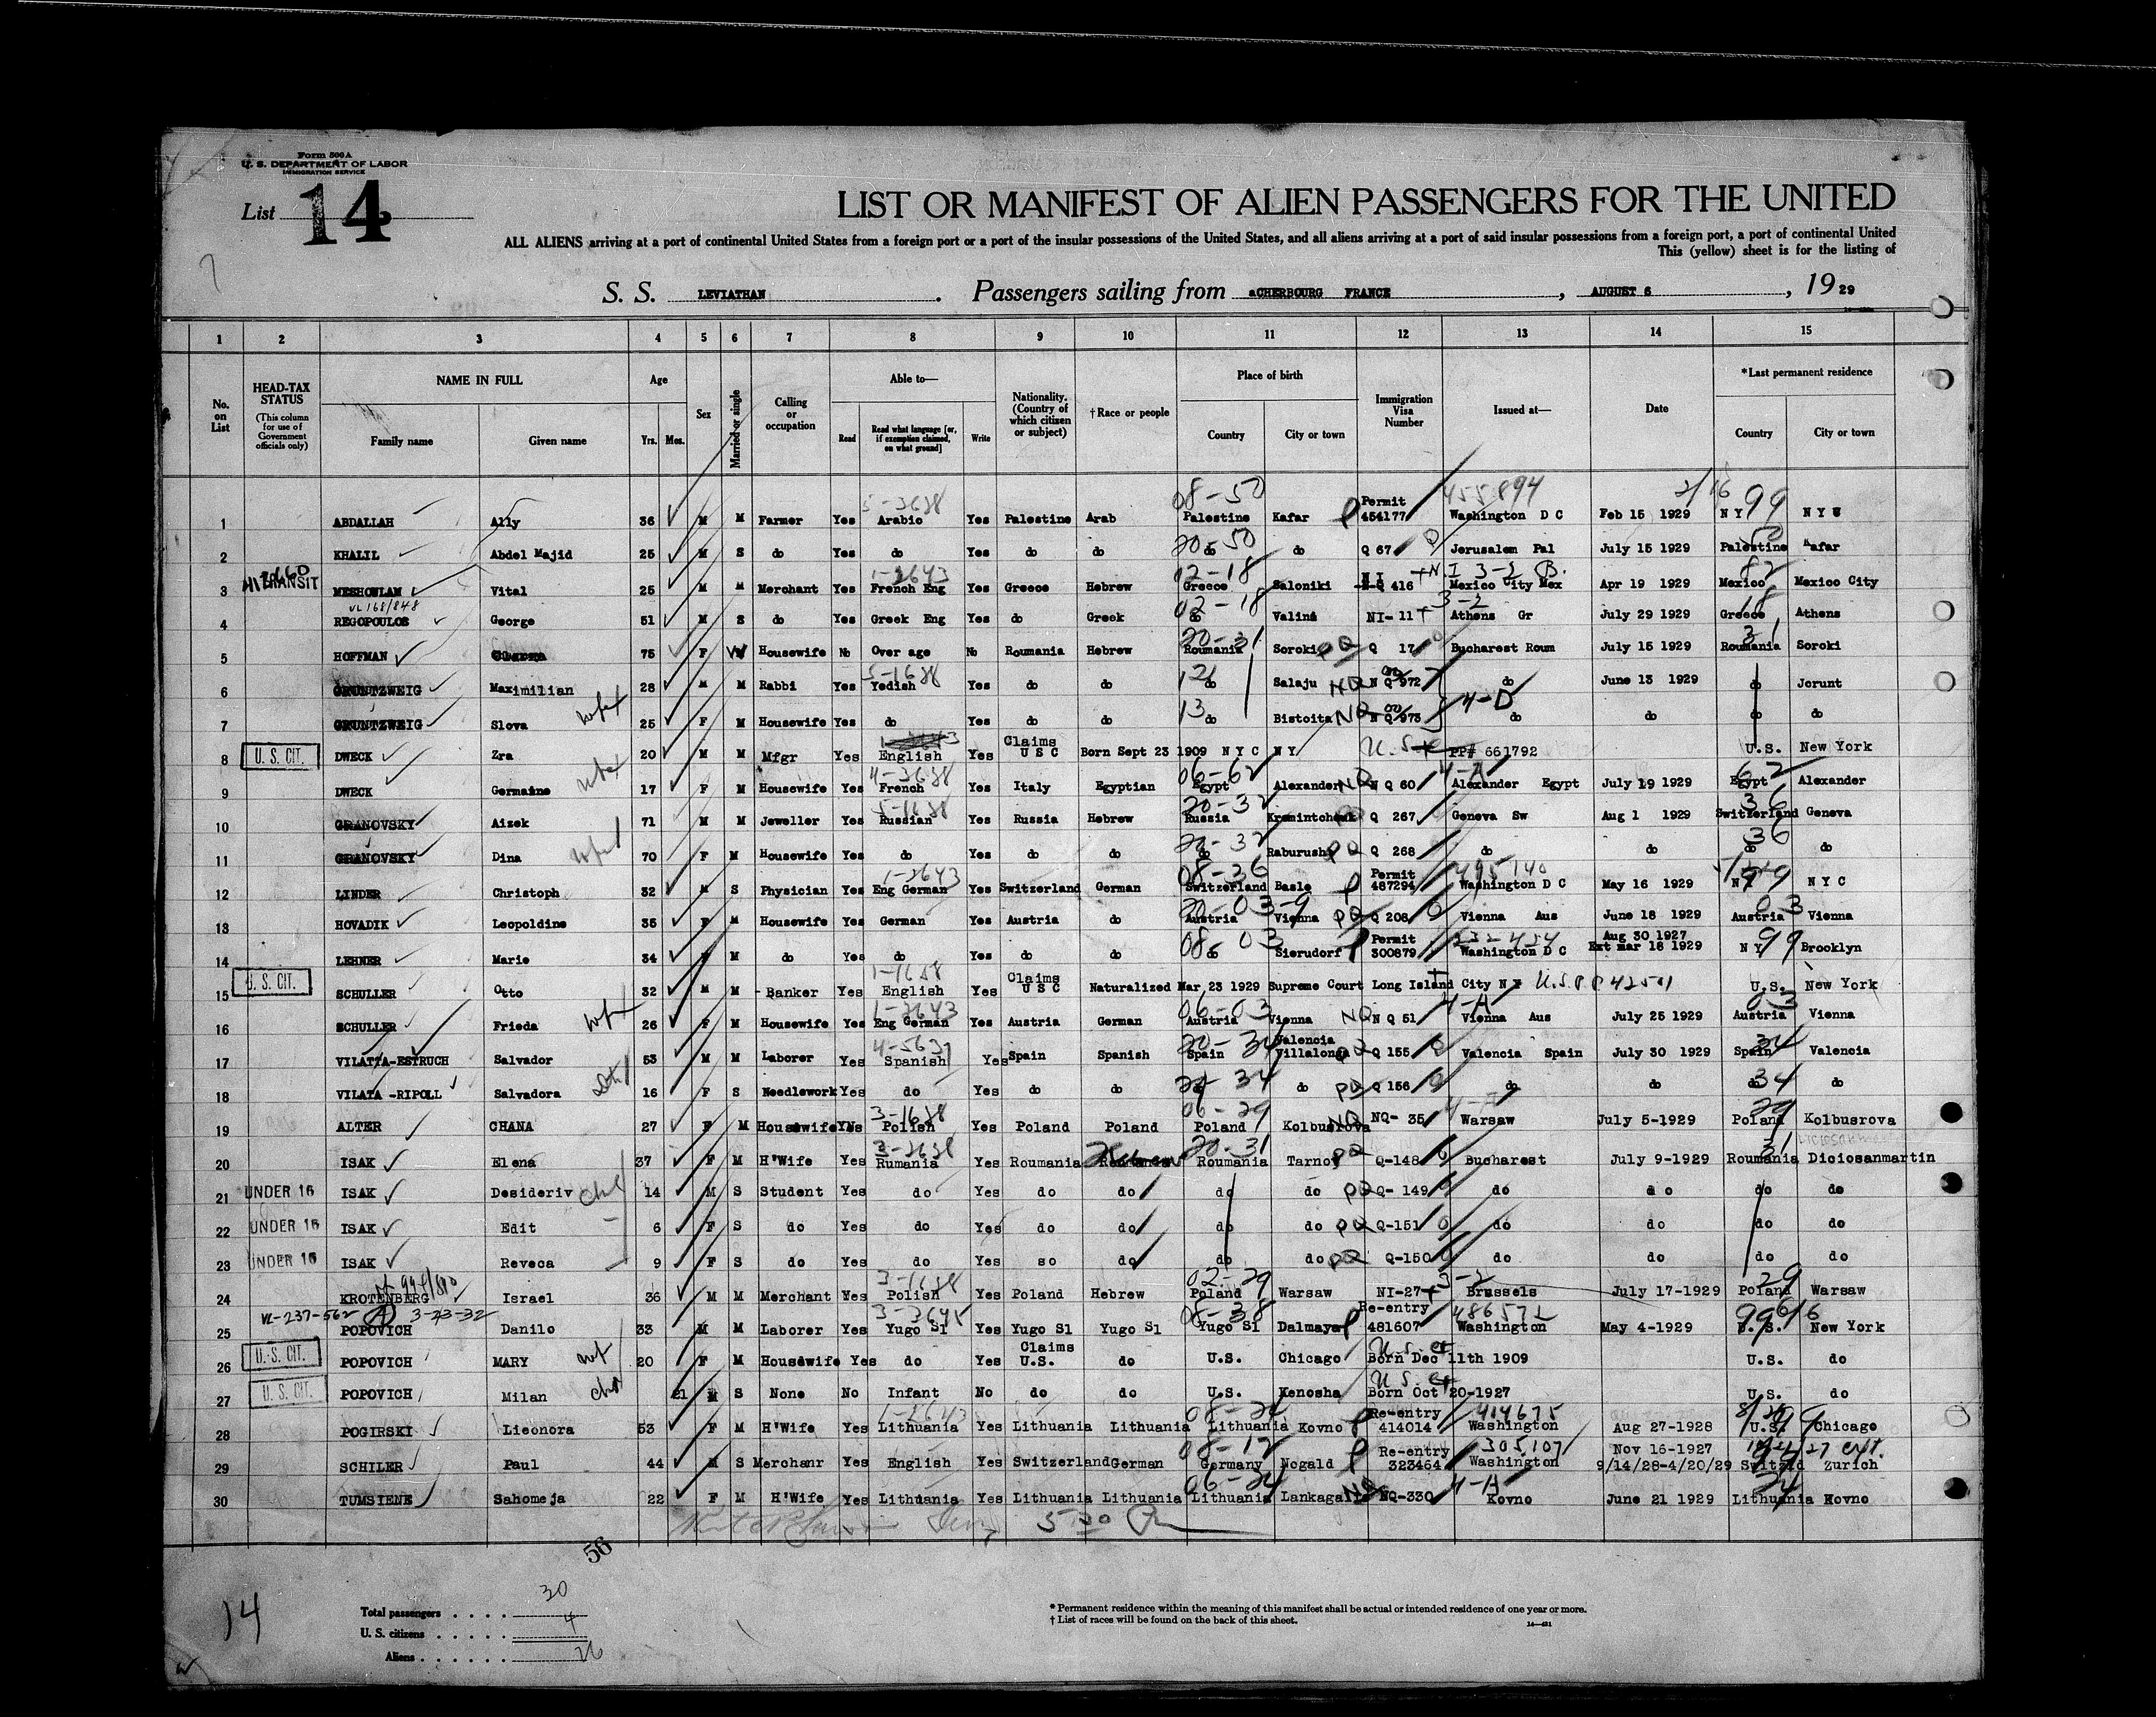 Form 500A
U. S. DEPARTMENT OF LABOR
IMMIGRATION SERVICE
List 14
LIST OR MANIFEST OF ALIEN PASSENGERS FOR THE UNITED
ALL ALIENS arriving at a port of continental United States from a foreign port or a port of the insular possessions of the United States, and all aliens arriving at a port of said insular possessions from a foreign port, a port of continental United
This (yellow) sheet is for the listing of
S. S. LEVIATHAN. Passengers sailing from aCHERBOURG FRANCE, AUGUST 6, 1929
1 2 3 4 5 6 7 8 9 10 11 12 13 14 15
No. on List
HEAD-TAX STATUS (This column for use of Government officials only)
NAME IN FULL
Family name Given name
Age
Yrs. Mos.
Sex
Married or single
Calling or occupation
Able to—
Read Read what language [or, if exemption claimed, on what ground] Write
Nationality. (Country of which citizen or subject)
†Race or people
Place of birth
Country City or town
Immigration Visa Number
Issued at—
Date
*Last permanent residence
Country City or town
5-3638 08-50 Permit 455894 2/16 99
1 ABDALLAH Ally 36 M M Farmer Yes Arabic Yes Palestine Arab Palestine Kafar 454177 Washington D C Feb 15 1929 N Y N Y
20-50
2 KHALIL Abdel Majid 25 M S do Yes do Yes do do do do Q 67 Jerusalem Pal July 15 1929 Palestine Kafar
TRANSIT 1-2643 12-18 N.I 3-2 B. 82
3 MESHOULAM Vital 25 M M Merchant Yes French Eng Yes Greece Hebrew Greece Saloniki Q 416 Mexico City Mex Apr 19 1929 Mexico Mexico City
VL168/848 02-18 3-2 18
4 REGOPOULOS George 51 M S do Yes Greek Eng Yes do Greek do Valina NI- 11 Athens Gr July 29 1929 Greece Athens
20-31 31
5 HOFFMAN 75 F W Housewife No Over age No Roumania Hebrew Roumania Soroki Q 17 Bucharest Roum July 15 1929 Roumania Soroki
5-1638
6 GRUNTZWEIG Maximilian 28 M M Rabbi Yes Yedish Yes do do do Salaju N Q 972 do June 13 1929 do Jorunt
13 4-D
7 GRUNTZWEIG Slova 25 F M Housewife Yes do Yes do do do Bistoita N Q 973 do do do do
8 U. S. CIT. DWECK Zra 20 M M Mfgr Yes English Yes Claims U S C Born Sept 23 1909 N Y C N Y PP# 661792 U.S. New York
4-3638 06-62 4-A 62
9 DWECK Germaine 17 F M Housewife Yes French Yes Italy Egyptian Egypt Alexander N Q 60 Alexander Egypt July 19 1929 Egypt Alexander
5-1638 20-32 36
10 GRANOVSKY Aizek 71 M M Jeweller Yes Russian Yes Russia Hebrew Russia Kremintchouk Q 267 Geneva Sw Aug 1 1929 Switzerland Geneva
36
11 GRANOVSKY Dina 70 F M Housewife Yes do Yes do do do Raburush Q 268 do do do do
1-2643 08-36 Permit 495140
12 LINDER Christoph 32 M S Physician Yes Eng German Yes Switzerland German Switzerland Basle 487294 Washington D C May 16 1929 N Y N Y C
20-03-9 03
13 HOVADIK Leopoldine 35 F M Housewife Yes German Yes Austria do Austria Vienna Q 208 Vienna Aus June 18 1929 Austria Vienna
08 03 Permit 232454 Aug 30 1927 99
14 LEHNER Marie 34 F M do Yes do Yes do do do Sierudorf 300879 Washington D C Ext mar 18 1929 N Y Brooklyn
1-1638
15 U. S. CIT. SCHULLER Otto 32 M M Banker Yes English Yes Claims U S C Naturalized Mar 23 1929 Supreme Court Long Island City N Y U.S.PP42501 U.S. New York
1-2643 06-03 4-A 03
16 SCHULLER Frieda 26 F M Housewife Yes Eng German Yes Austria German Austria Vienna N Q 51 Vienna Aus July 25 1929 Austria Vienna
4-5637 20-34 Valencia 34
17 VILATTA-ESTRUCH Salvador 53 M M Laborer Yes Spanish Yes Spain Spanish Spain Villalonga Q 155 Valencia Spain July 30 1929 Spain Valencia
34 34
18 VILATA -RIPOLL Salvadora 16 F S Needlework Yes do Yes do do do do Q 156 do do do do
3-1638 06-29 4-A 29
19 ALTER CHANA 27 F M Housewife Yes Polish Yes Poland Poland Poland Kolbusrova NQ- 35 Warsaw July 5-1929 Poland Kolbusrova
3-2638 20-31 31
20 ISAK Elena 37 F M H'Wife Yes Rumania Yes Roumania Hebrew Roumania Tarnov Q-148 Bucharest July 9-1929 Roumania Diciosanmartin
21 UNDER 16 ISAK Desideriv 14 M S Student Yes do Yes do do do do Q- 149 do do do do
22 UNDER 16 ISAK Edit 6 F S do Yes do Yes do do do do Q-151 do do do do
23 UNDER 16 ISAK Reveca 9 F S do Yes do Yes so do do do Q-150 do do do do
3-1638 02-29 3-2 29
24 KROTENBERG Israel 36 M M Merchant Yes Polish Yes Poland Hebrew Poland Warsaw NI-27 Brussels July 17-1929 Poland Warsaw
VL-237-562 3-23-32 3-3645 08-38 Re-entry 486572
25 POPOVICH Danilo 33 M M Laborer Yes Yugo Sl Yes Yugo Sl Yugo Sl Yugo Sl Dalmaya 481607 Washington May 4-1929 U.S. New York
26 U. S. CIT. POPOVICH MARY 20 F M Housewife Yes do Yes Claims U.S. do U.S. Chicago Born Dec 11th 1909 U.S. do
27 U. S. CIT. POPOVICH Milan 21 M S None No Infant No do do U.S. Kenosha Born Oct 20-1927 U.S. do
1-2643 08-24 Re-entry 414675
28 POGIRSKI Lieonora 53 F M H'Wife Yes Lithuania Yes Lithuania Lithuania Lithuania Kovno 414014 Washington Aug 27-1928 U.S. Chicago
08-12 Re-entry 305107 Nov 16-1927
29 SCHILER Paul 44 M S Merchanr Yes English Yes Switzerland German Germany Nogald 323464 Washington 9/14/28-4/20/29 Switzld Zurich
06-24 4-A 24
30 TUMSIENE Sahomeja 22 F M H'Wife Yes Lithuania Yes Lithuania Lithuania Lithuania NQ-330 Kovno June 21 1929 Lithuania Kovno
56
14
Total passengers . . . . 30
U. S. citizens . . . . . 4
Aliens . . . . . . 26
* Permanent residence within the meaning of this manifest shall be actual or intended residence of one year or more.
† List of races will be found on the back of this sheet.